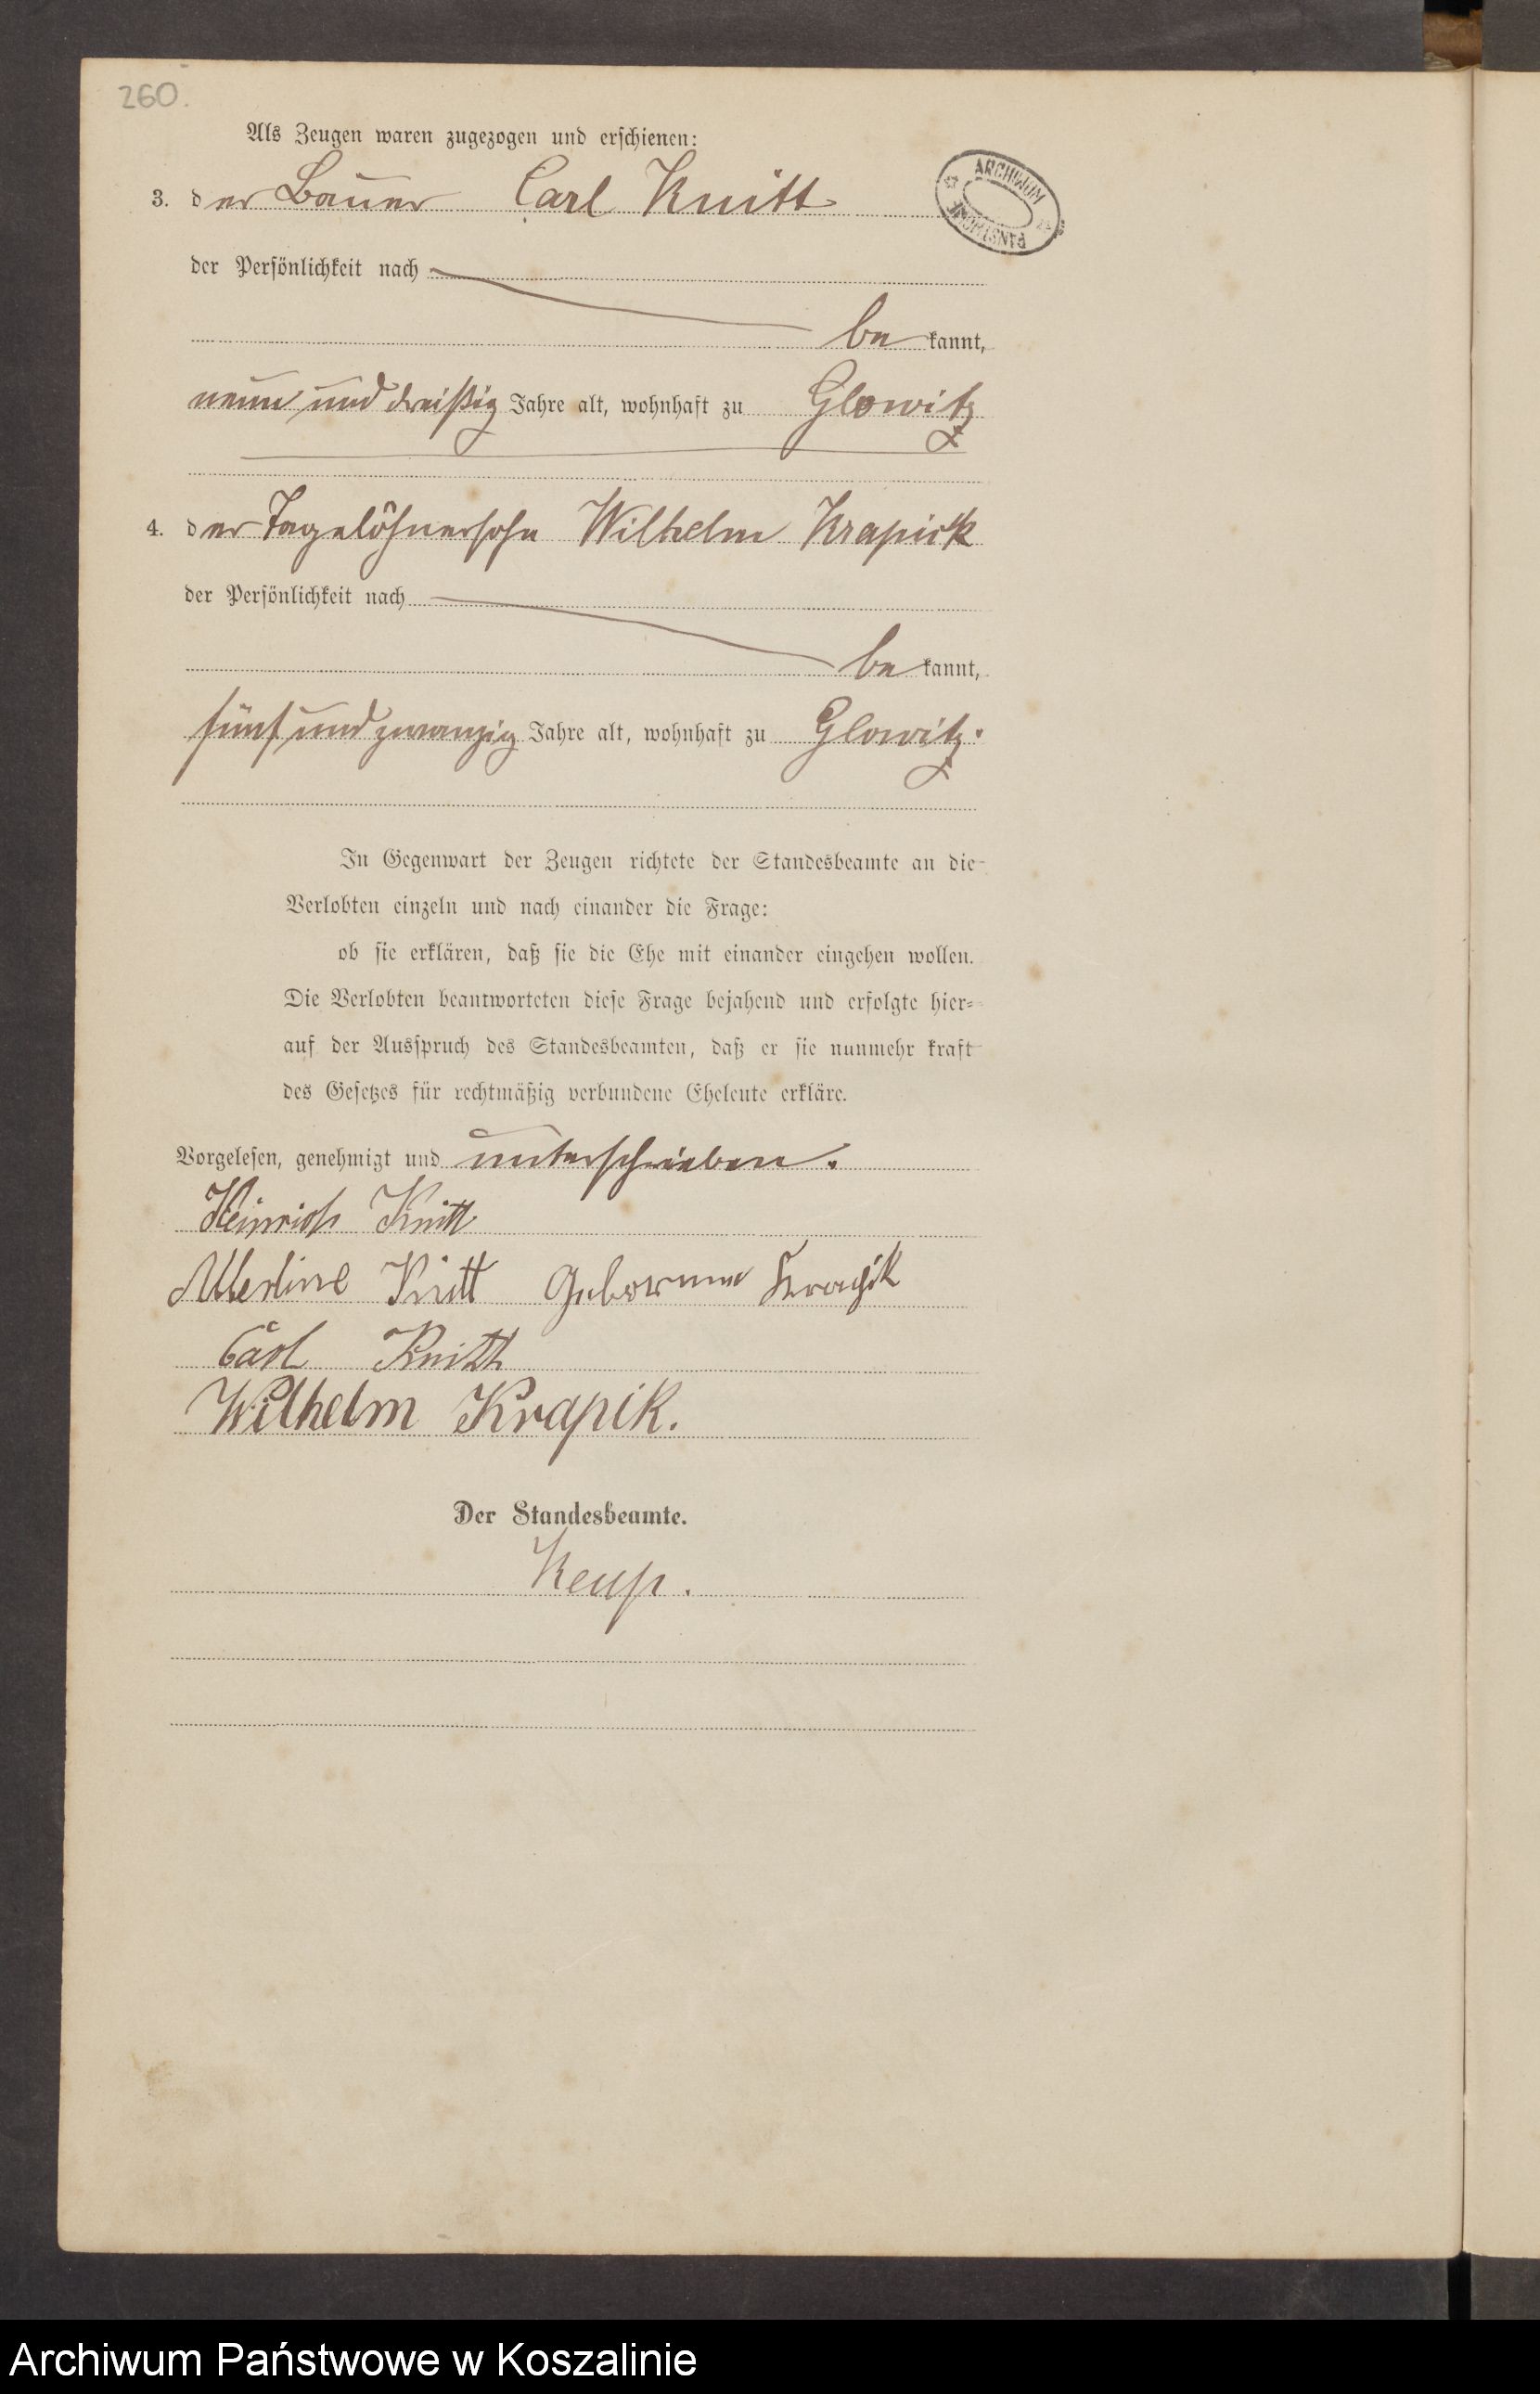 260.
Als Zeugen waren zugezogen und erschienen:
3. der Bauer Carl Knitt
der Persönlichkeit nach
bekannt,
neun und dreißig Jahre alt, wohnhaft zu Glowitz
4. der Tagelöhnersohn Wilhelm Krapick
der Persönlichkeit nach
bekannt,
fünf und zwanzig Jahre alt, wohnhaft zu Glowitz.
In Gegenwart der Zeugen richtete der Standesbeamte an die
Verlobten einzeln und nach einander die Frage:
ob sie erklären, daß sie die Ehe mit einander eingehen wollen.
Die Verlobten beantworteten diese Frage bejahend und erfolgte hier-
auf der Ausspruch des Standesbeamten, daß er sie nunmehr kraft
des Gesetzes für rechtmäßig verbundene Eheleute erkläre.
Vorgelesen, genehmigt und unterschrieben.
Heinrich Knitt
Albertine Knitt Geborenne Krapik
Carl Knitt
Wilhelm Krapik.
Der Standesbeamte.
Keup.
ARCHIWUM PAŃSTWOWE
Archiwum Państwowe w Koszalinie